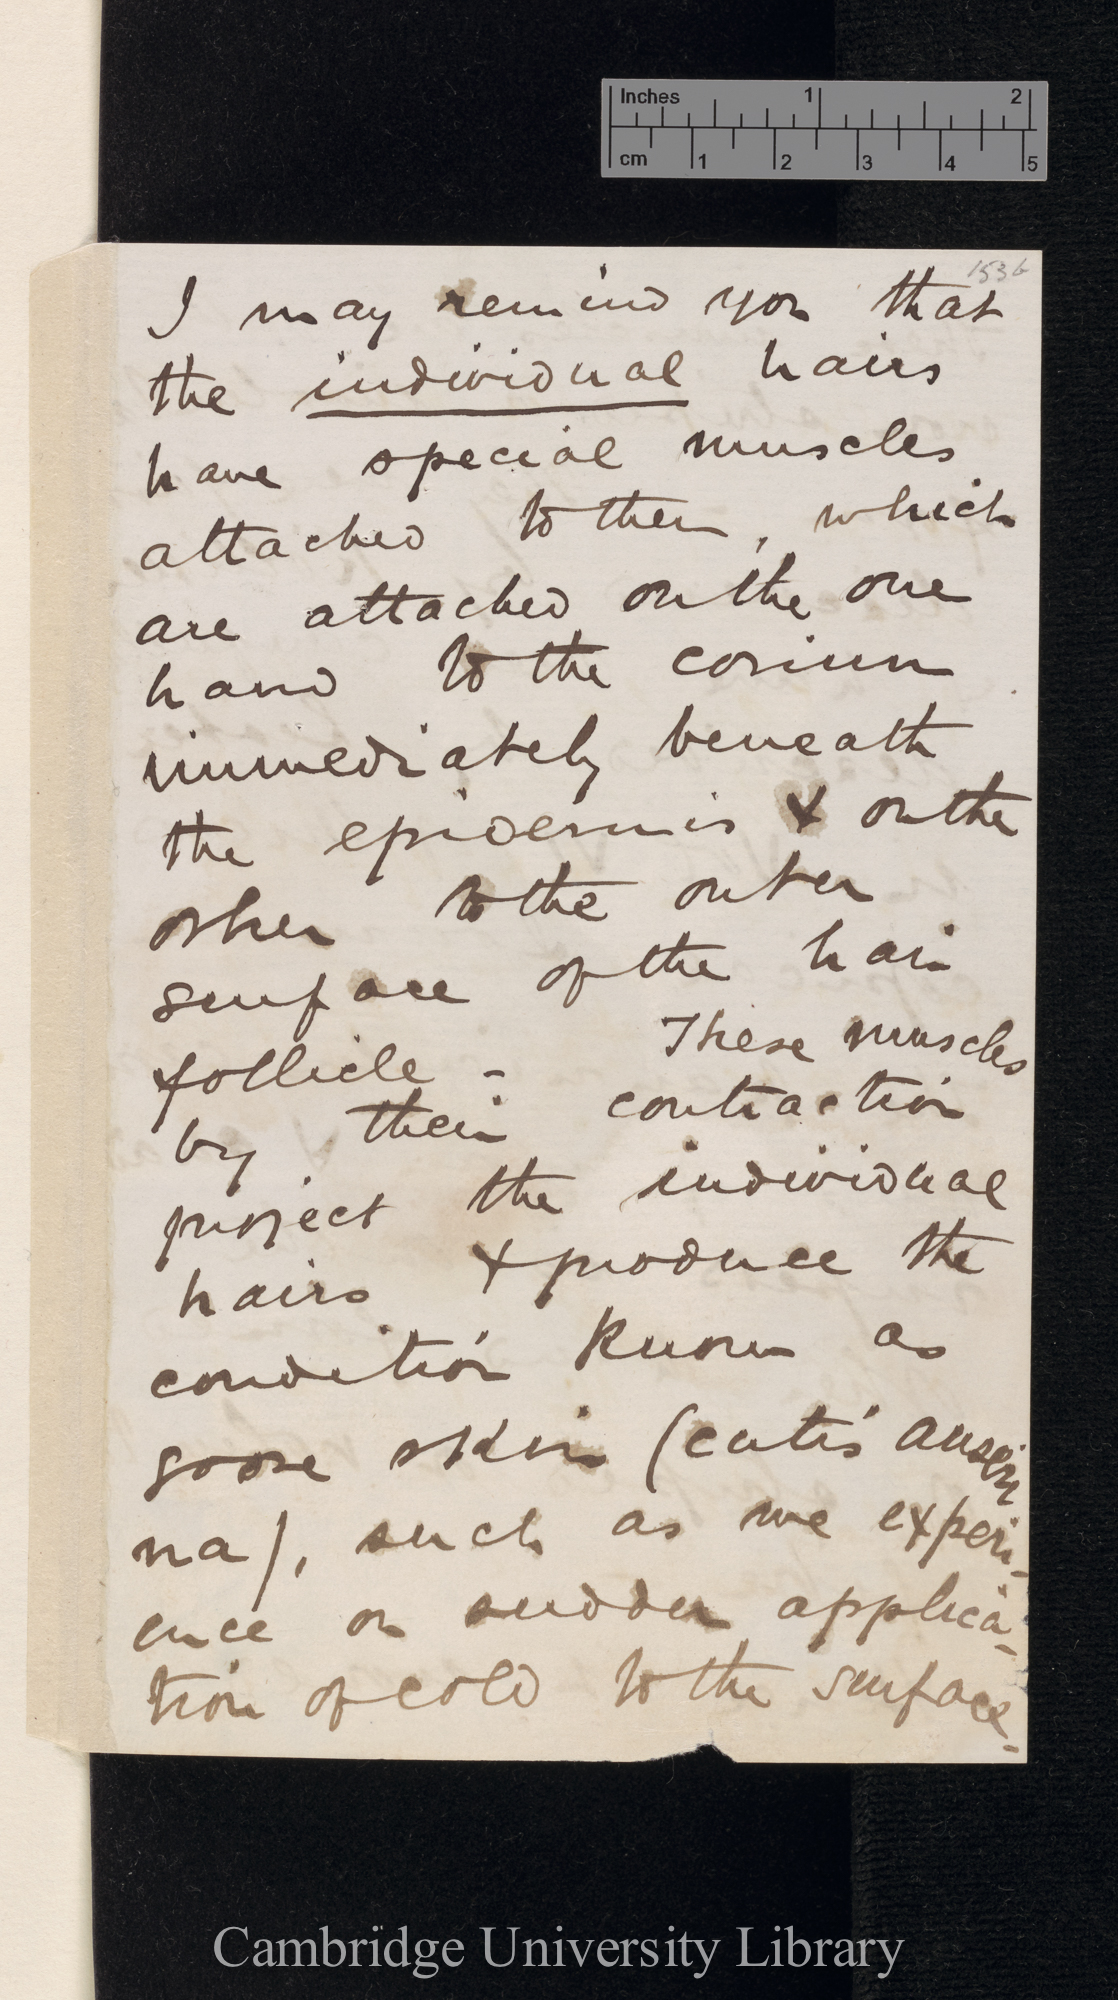 Inches 1 2
cm 1 2 3 4 5
153b
I may remind you that
the individual hairs
have special muscles
attached to them, which
are attached on the one
hand to the corium
immediately beneath
the epidermis & on the
other to the outer
surface of the hair
follicle - These muscles
by their contraction
project the individual
hairs & produce the
condition known as
goose skin (cutis anseri
na), such as we experi-
ence on sudden applica-
tion of cold to the surface-
Cambridge University Library